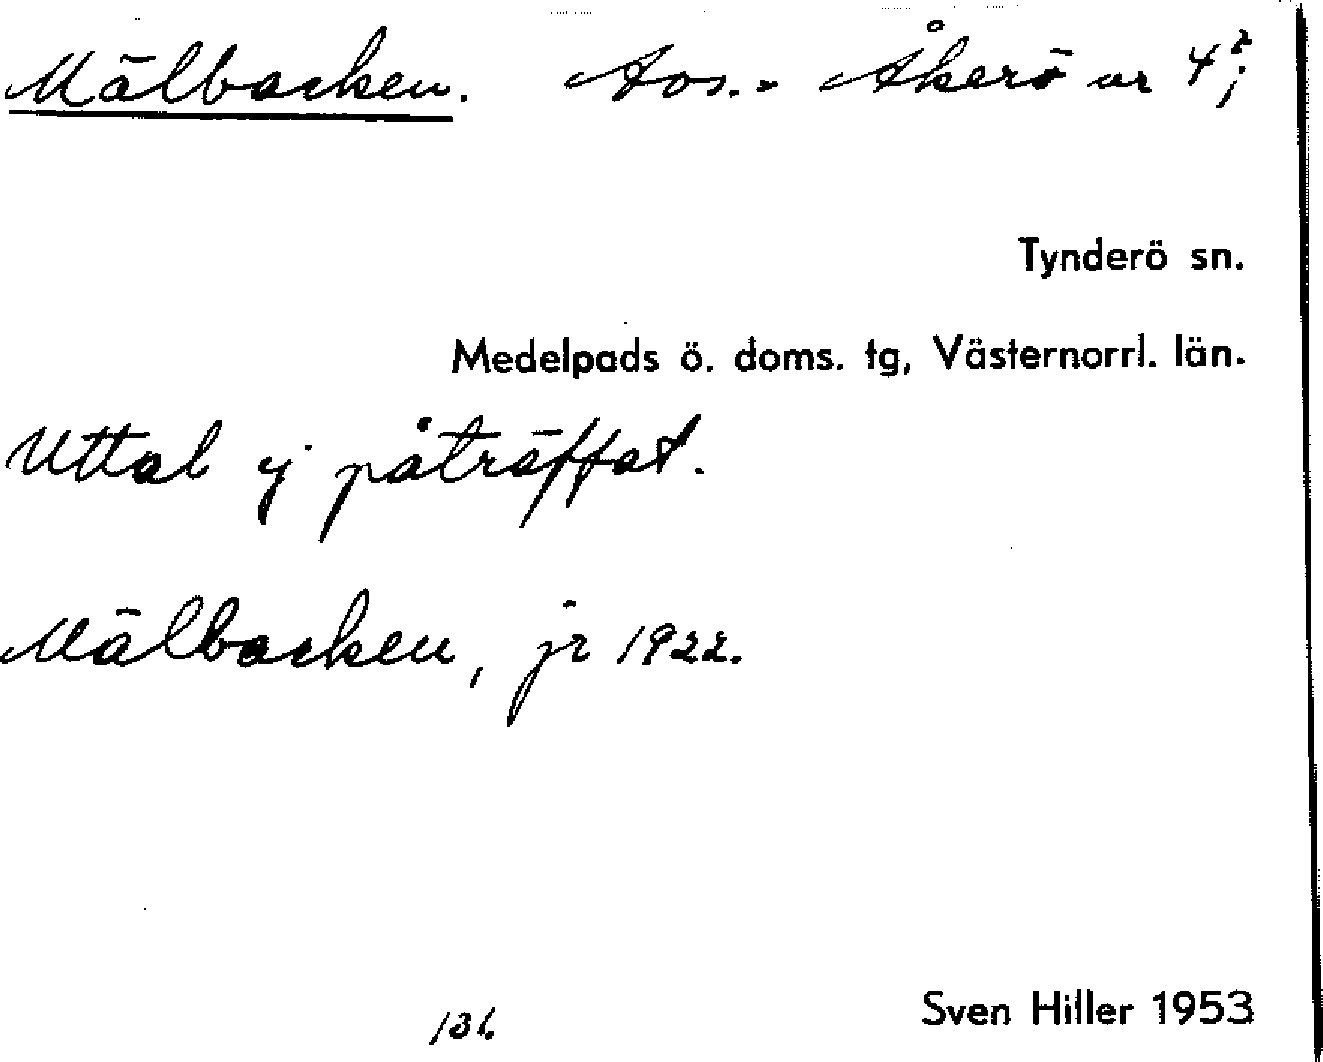 Mälbacken. Avs. Åkerö nr 4²;
Tynderö sn.
Medelpads ö. doms. tg, Västernorrl. län.
Uttal ej påträffat.
Mälbacken, jr 1922.
Sven Hiller 1953